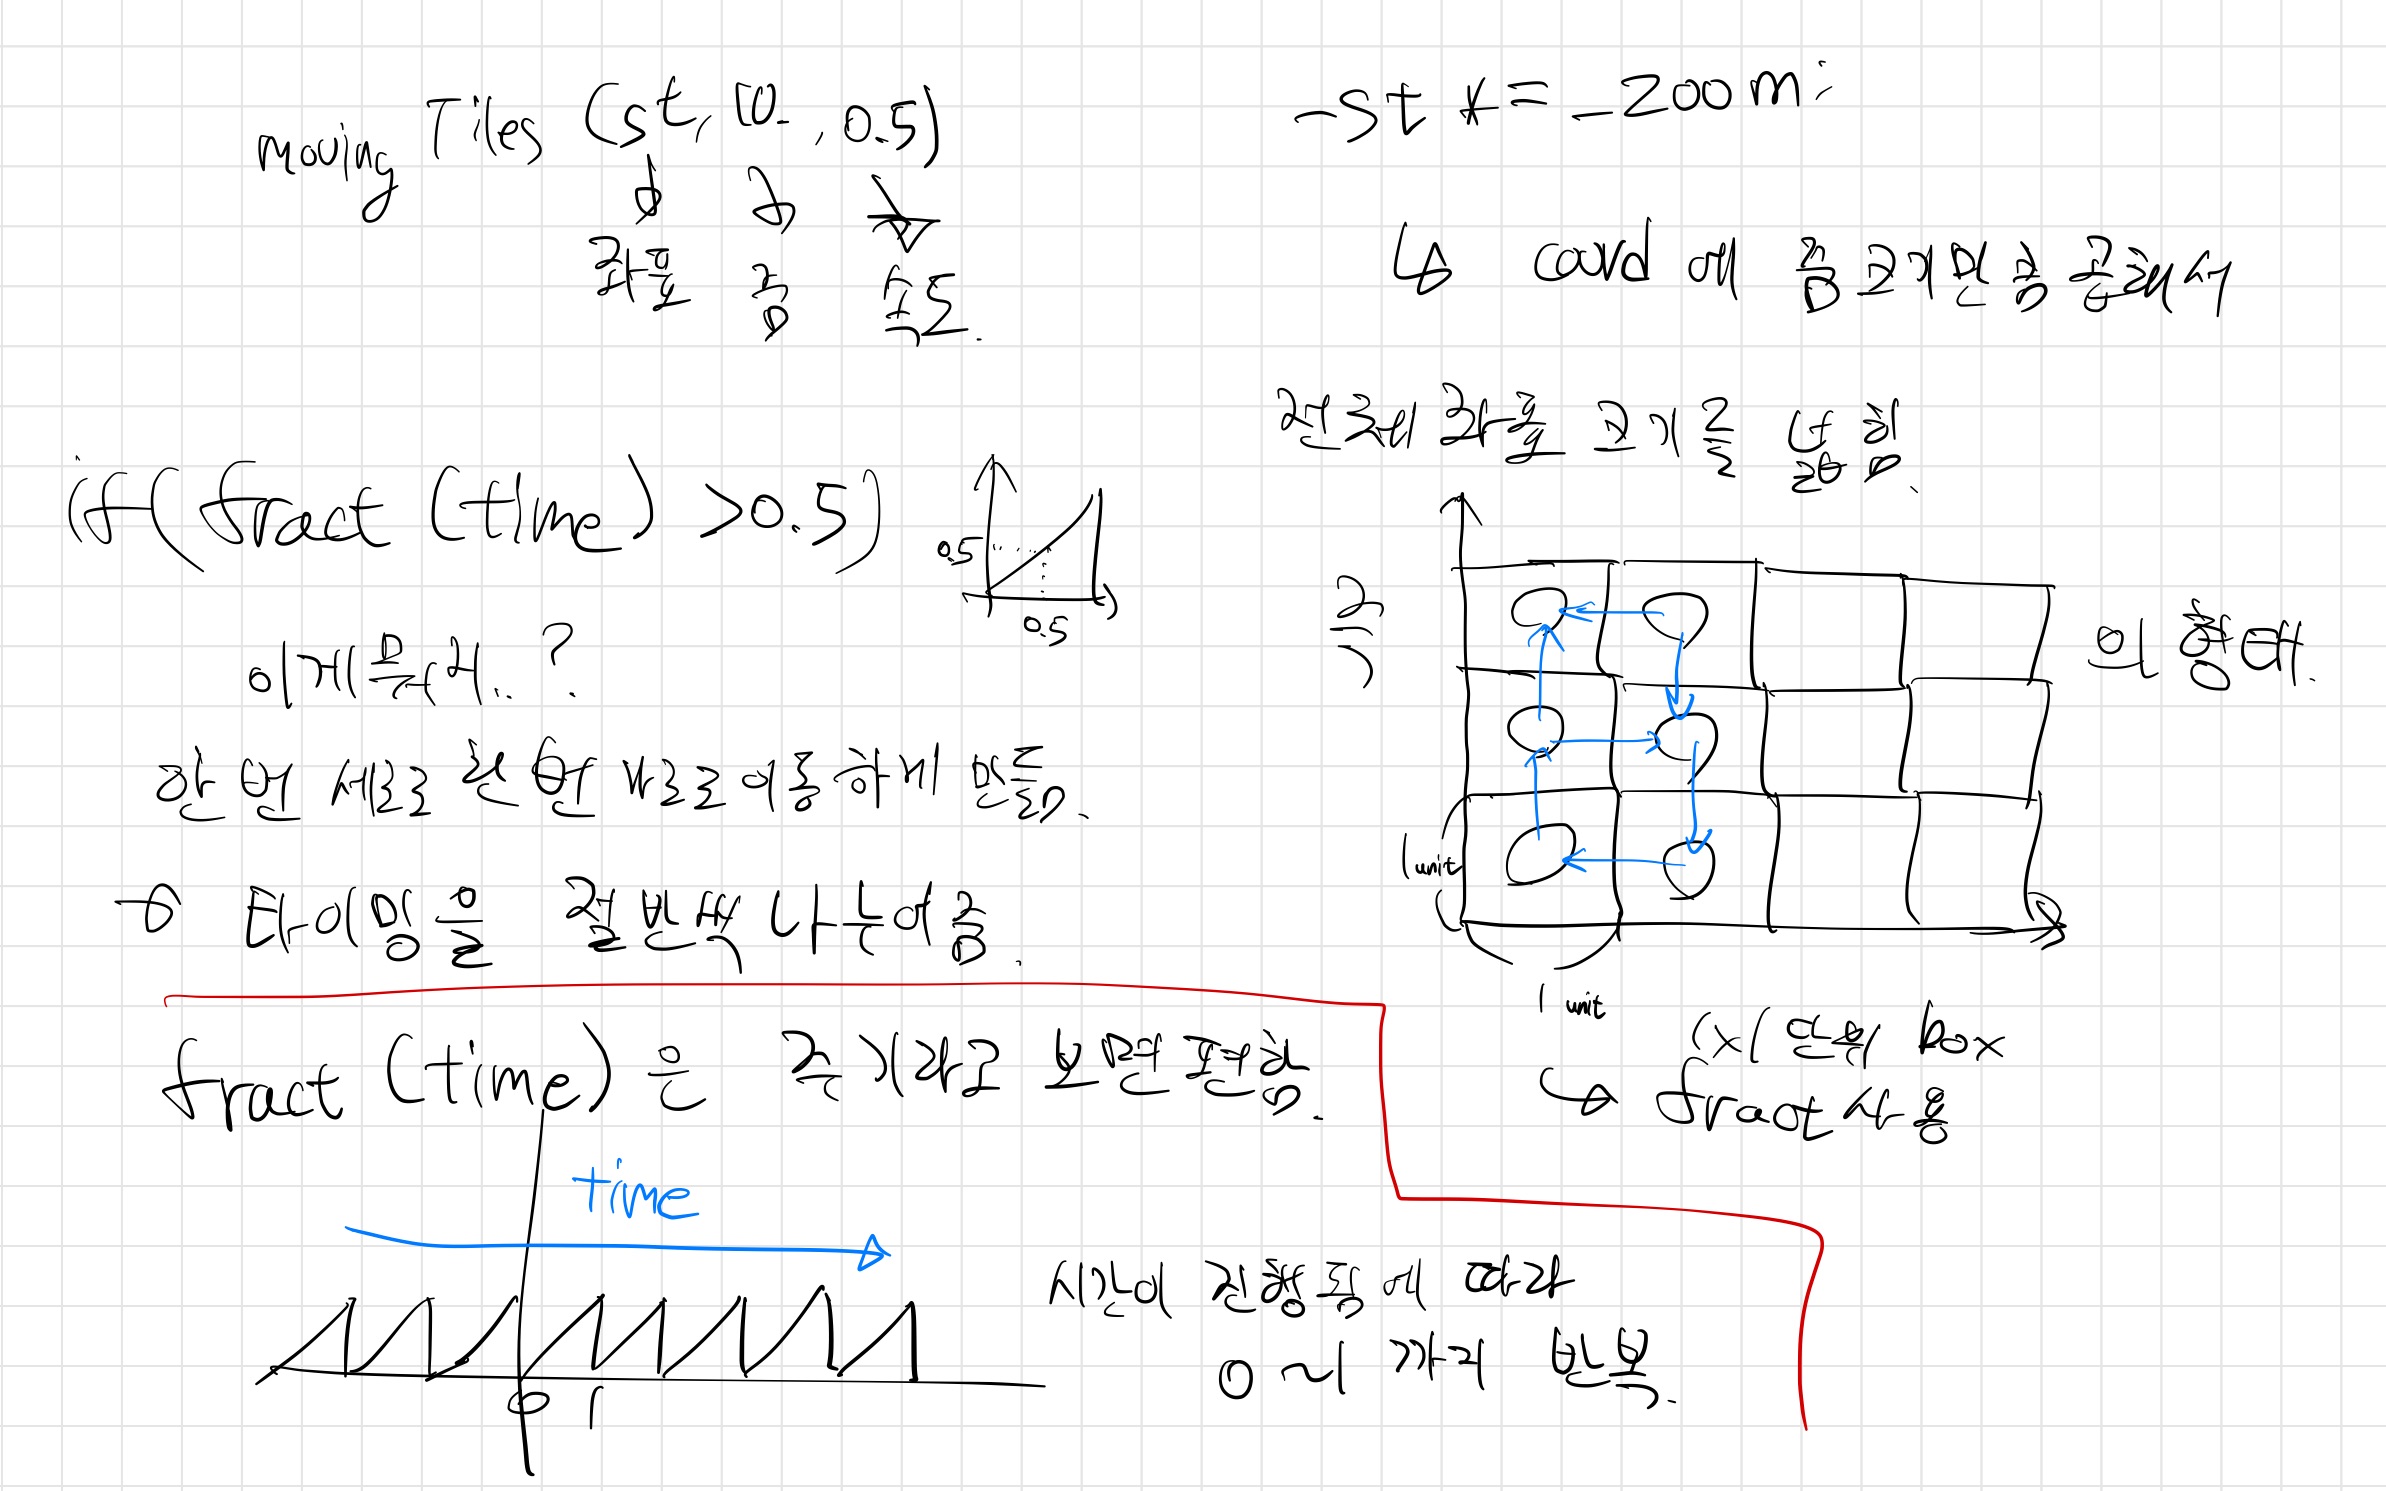 moving Tiles (st, 10. , 0.5)
좌표 줌 속도.
if(fract(time) > 0.5)
0.5
0.5
이게 뭐지..?
한 번 세로 한번 가로로 이동하게 만듦.
→ 타이밍을 절반씩 나눈어줌.
fract (time) 은 주기라고 보면 편함.
time
0 1
시간이 진행됨에 따라
0~1 까지 반복.
_st *= _zoom;
↳ coord 에 줌크기만큼 곱해서
전체 좌표 크기를 넓힘.
즉)
의 형태.
1 unit
1 unit
1x1 단위 box
↳ fract 사용